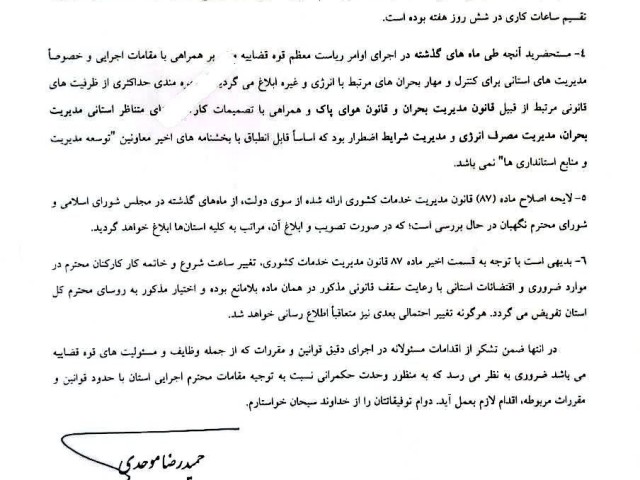 تقسیم ساعات کاری در شش روز هفته بوده است.
۴- مستحضرید آنچه طی ماه های گذشته در اجرای اوامر ریاست معظم قوه قضاییه بر همراهی با مقامات اجرایی و خصوصاً
مدیریت های استانی برای کنترل و مهار بحران های مرتبط با انرژی و غیره ابلاغ می گردید مندی حداکثری از ظرفیت های
قانونی مرتبط از قبیل قانون مدیریت بحران و قانون هوای پاک و همراهی با تصمیمات متناظر استانی مدیریت
بحران، مدیریت مصرف انرژی و مدیریت شرایط اضطرار بود که اساساً قابل انطباق با بخشنامه های اخیر معاونین "توسعه مدیریت
و منابع استانداری ها" نمی باشد.
۵- لایحه اصلاح ماده (۸۷) قانون مدیریت خدمات کشوری ارائه شده از سوی دولت، از ماه‌های گذشته در مجلس شورای اسلامی و
شورای محترم نگهبان در حال بررسی است؛ که در صورت تصویب و ابلاغ آن، مراتب به کلیه استان‌ها ابلاغ خواهد گردید.
۶- بدیهی است با توجه به قسمت اخیر ماده ۸۷ قانون مدیریت خدمات کشوری، تغییر ساعت شروع و خاتمه کار کارکنان محترم در
موارد ضروری و اقتضائات استانی با رعایت سقف قانونی مذکور در همان ماده بلامانع بوده و اختیار مذکور به روسای محترم کل
استان تفریض می گردد. هرگونه تغییر احتمالی بعدی نیز متعاقباً اطلاع رسانی خواهد شد.
در انتها ضمن تشکر از اقدامات مسئولانه در اجرای دقیق قوانین و مقررات که از جمله وظایف و مسئولیت های قوه قضاییه
می باشد ضروری به نظر می رسد که به منظور وحدت حکمرانی نسبت به توجیه مقامات محترم اجرایی استان با حدود قوانین و
مقررات مربوطه، اقدام لازم بعمل آید. دوام توفیقاتتان را از خداوند سبحان خواستارم.
حمیدرضا موحدی